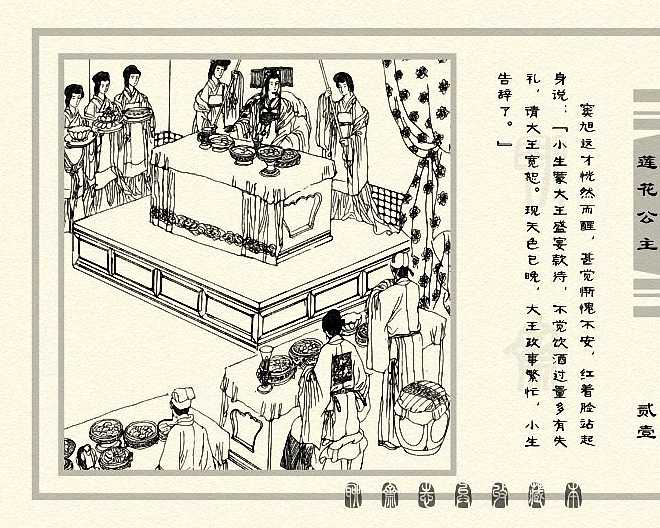 莲花公主
贰壹
窦旭这才恍然而醒，甚觉惭愧不安，红着脸站起
身说：『小生蒙大王盛宴款待，不觉饮酒过量多有失
礼，请大王宽恕。现天色已晚，大王政事繁忙，小生
告辞了。』